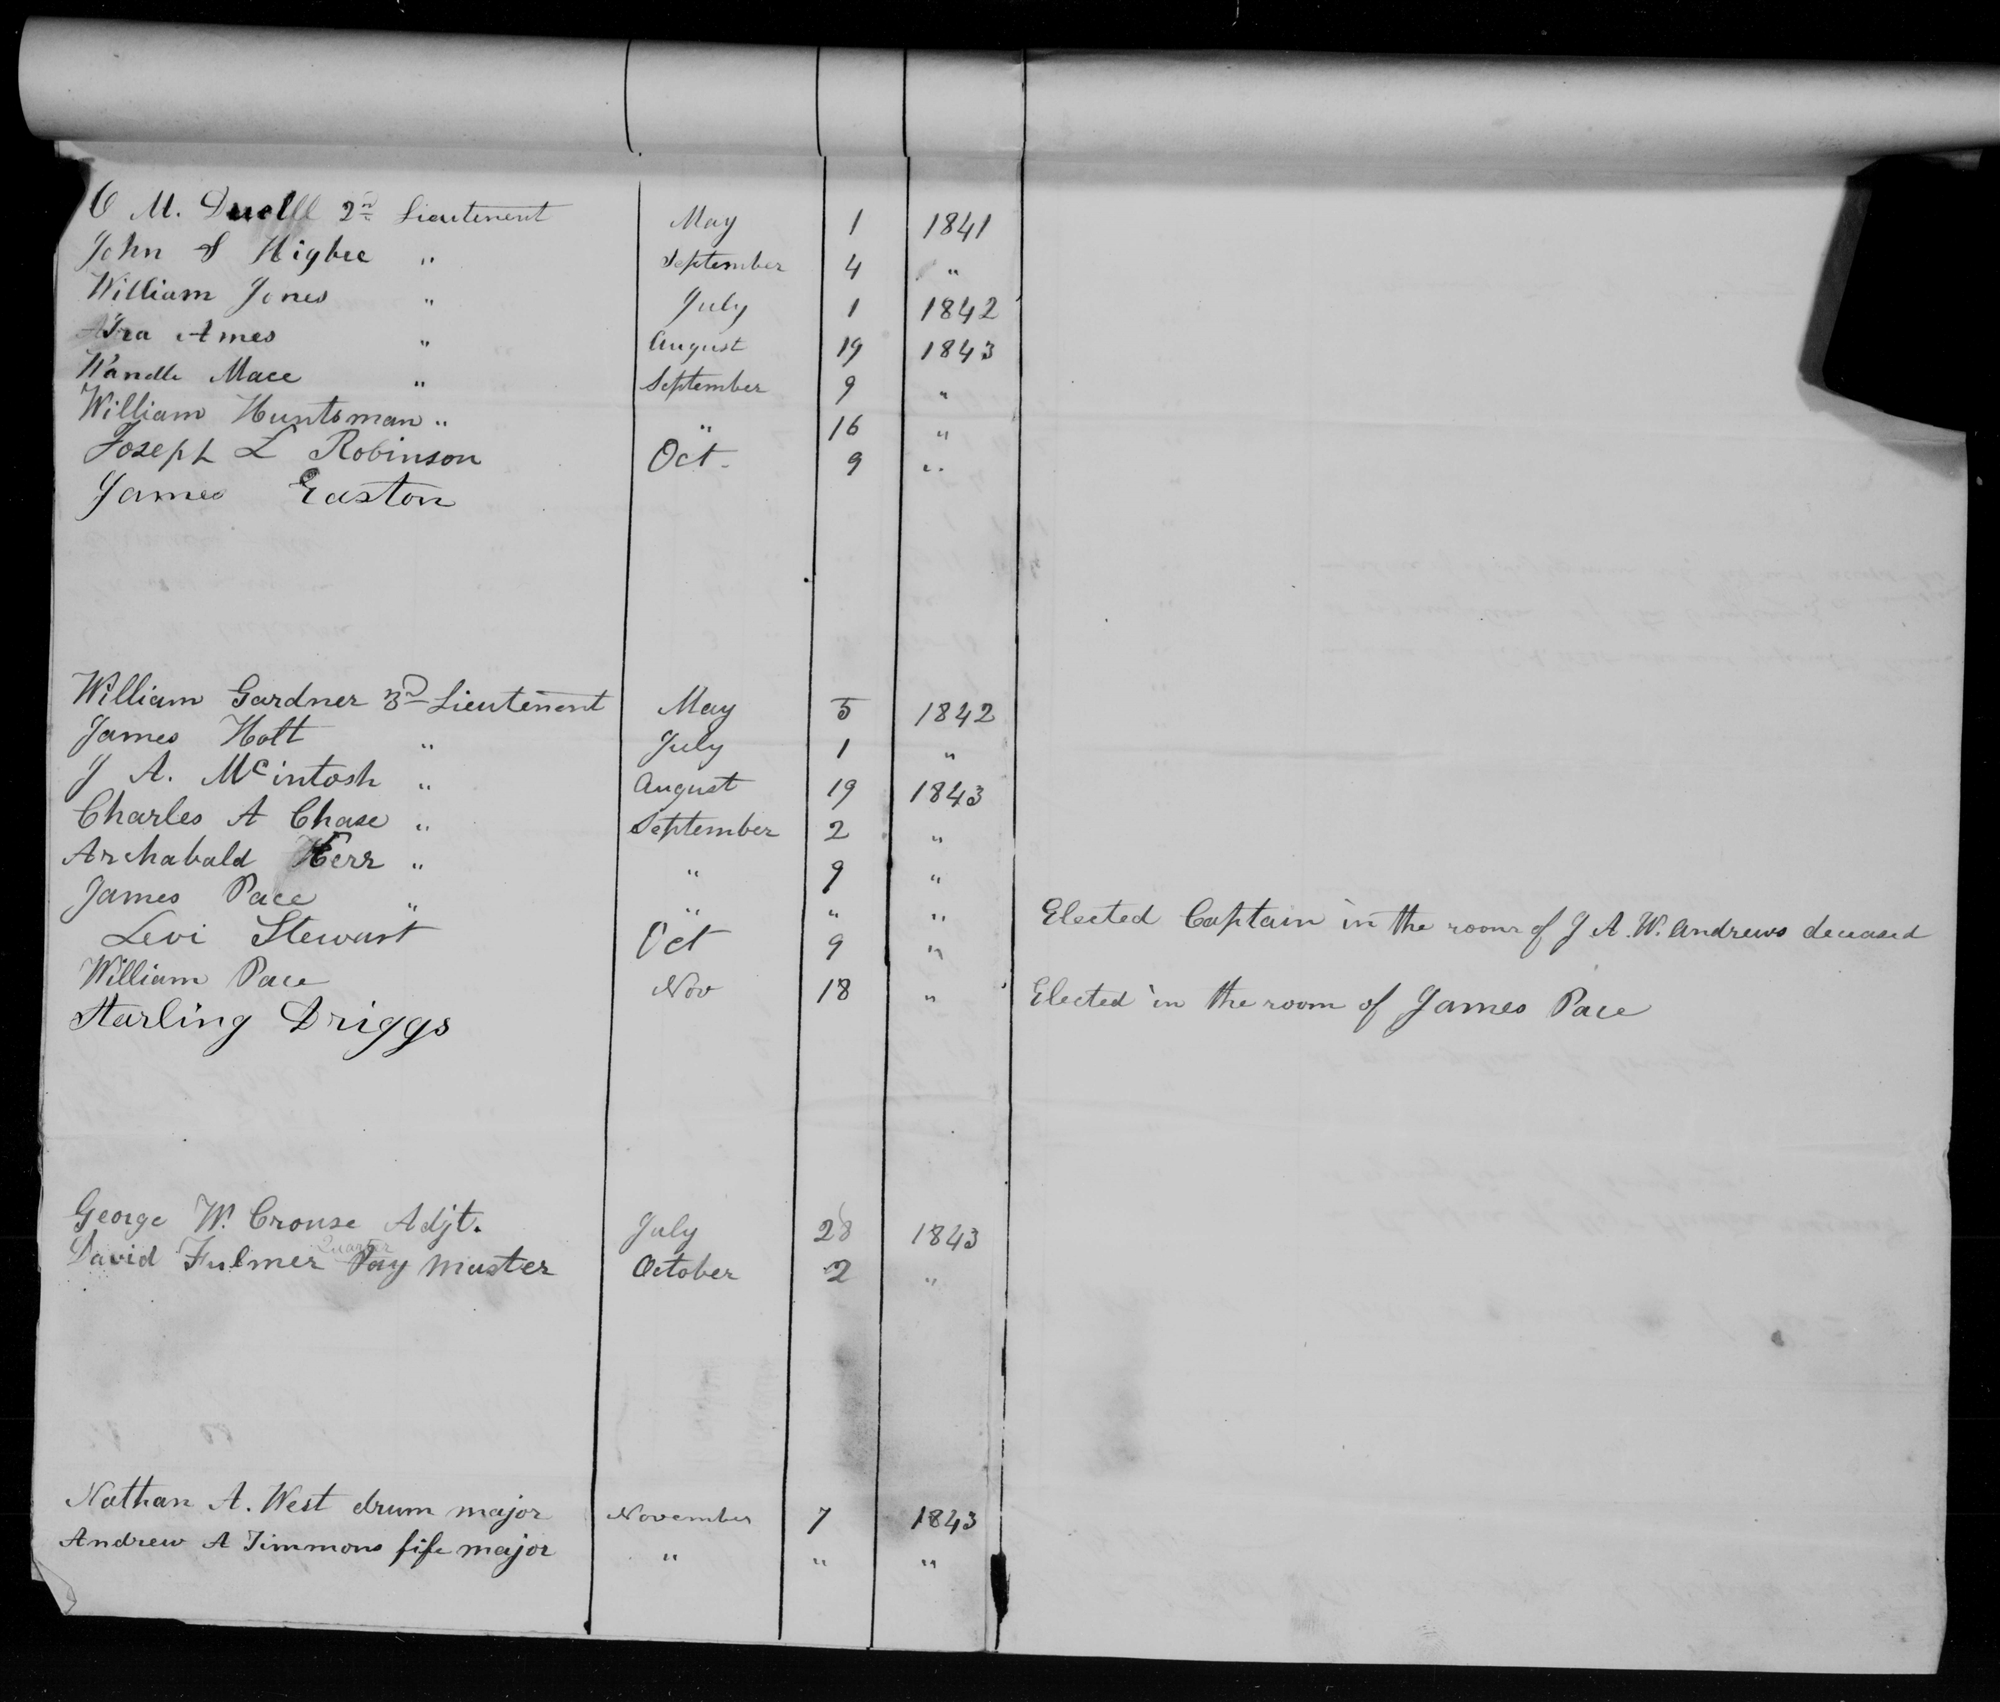 O M. Duell 2nd Lieutenent May 1 1841
John S Higbee " September 4 "
William Jones " July 1 1842
Ira Ames " August 19 1843
Wandle Mace " September 9 "
William Huntsman " " 16 "
Joseph L Robinson Oct. 9 "
James Easton
William Gardner 3rd Lieutenent May 5 1842
James Holt " July 1 "
J A. McIntosh " August 19 1843
Charles A Chase " September 2 "
Archabald Kerr " " 9 "
James Pace " " " " Elected Captain in the room of J A. W. Andrews deceased
Levi Stewart Oct 9 "
William Pace Nov 18 " Elected in the room of James Pace
Starling Driggs
George W. Crouse Adjt. July 28 1843
Quarter
David Fulmer Pay Master October 2 "
Nathan A. West drum major November 7 1843
Andrew A Timmons fife major " " "